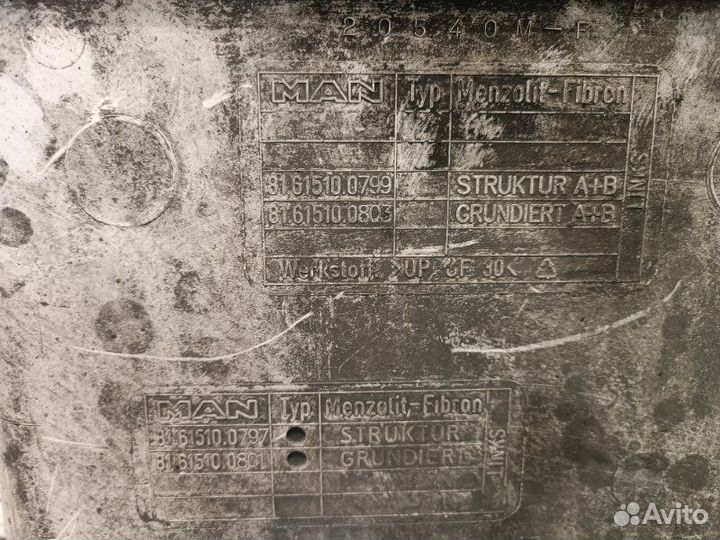 20540M-F
MAN Typ Menzolit-Fibron
81.61510.0799 STRUKTUR A+B
81.61510.0803 GRUNDIERT A+B
Werkstoff: >UP-GF 30<
LINKS
MAN Typ Menzolit-Fibron
81.61510.0797 STRUKTUR
81.61510.0801 GRUNDIERT
LINKS
Avito